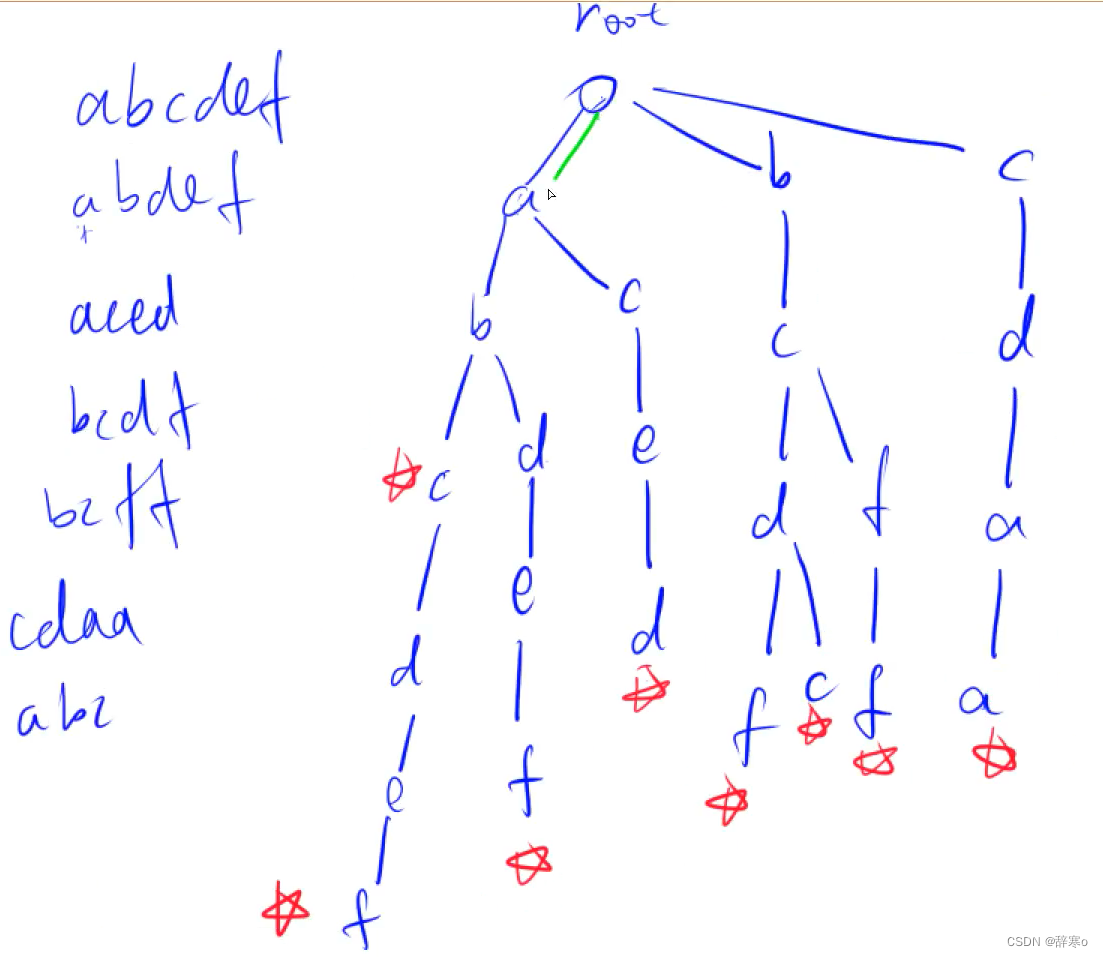 root
abcdef
abdef
aced
bcdf
bcff
cdaa
abc
a b c
b c c d
c d e d f a
d e d f c f a
e f
f
CSDN @辞寒o